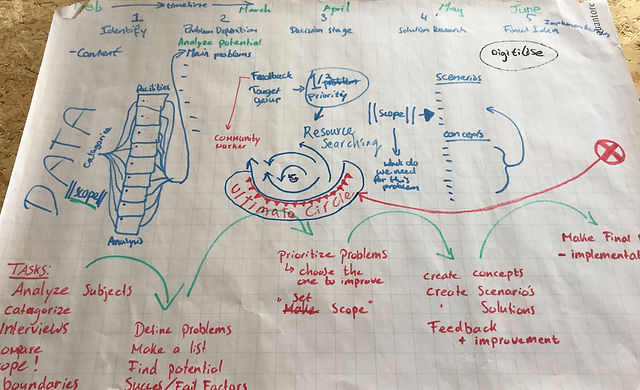 Feb
timeline
March
April
May
June
1
2
3
4
5
Implementation
Identify
Problem Depention
Decision stage
Solution Research
Final Idea
- Content
Analyze potential
Main problems
Digitilise
Facilities
Feedback
Target
group
1/3
problem
Priority
Scenarios
||scope||
DATA
Categorize
Community
worker
Resource
Searching
concepts
what do
we need
for this
problem
||scope||
Ultimate Circle
Analysis
TASKS:
Analyze Subjects
catagorize
Interviews
boundaries
Define problems
Make a list
Find potential
Succes/Fail Factors
Prioritize Problems
choose the
one to improve
Set
"Make Scope"
create concepts
Create Scenario's
" Solutions
Feedback
+ improvement
Make Final
- implementat